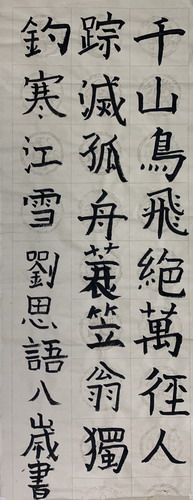 千山鳥飛絕萬徑人
踪滅孤舟蓑笠翁獨
釣寒江雪劉思語八歲書